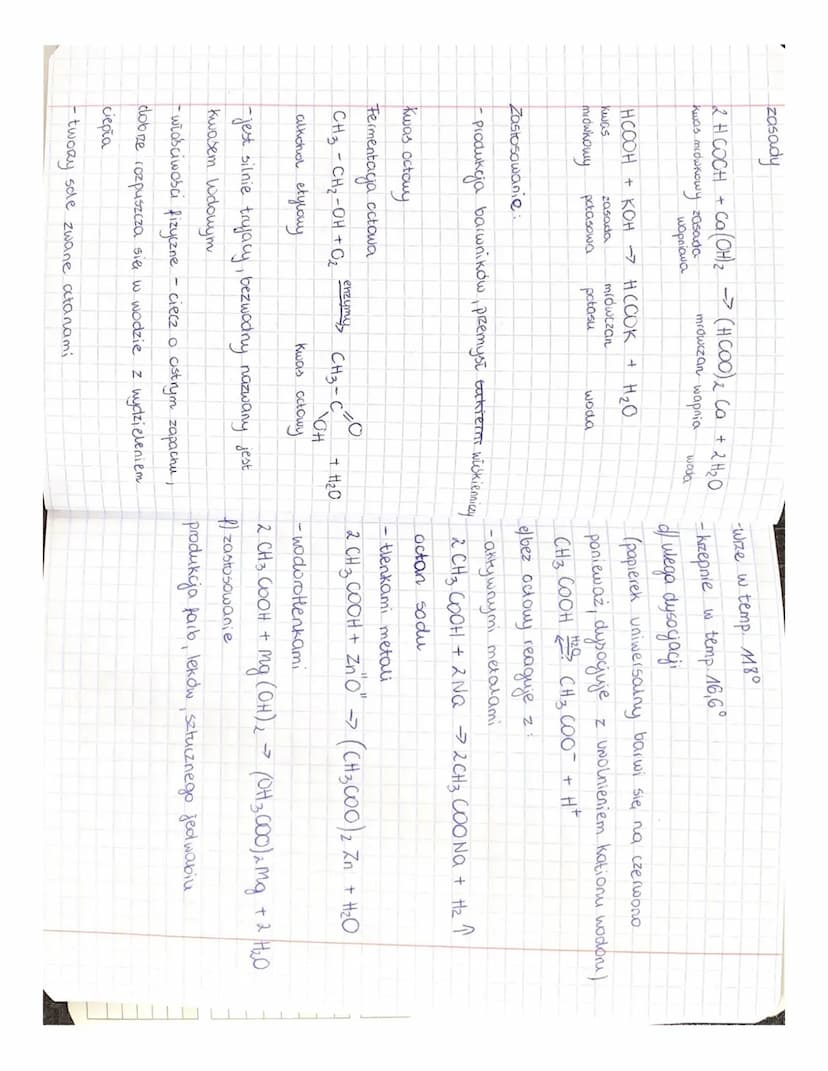 zasady
2 HCOOH + Ca(OH)₂ → (HCOO)₂ Ca + 2H₂O
kwas mrówkowy zasada wapniowa mrówczan wapnia woda
HCOOH + KOH → HCOOK + H₂O
kwas mrówkowy zasada potasowa mrówczan potasu woda
Zastosowanie:
- produkcja barwników, przemysł włókienniczy
Kwas octowy
Fermentacja octowa
CH₃ - CH₂ - OH + O₂ enzymy→ CH₃ - C =O \OH + H₂O
alkohol etylowy kwas octowy
- jest silnie trujący, bezwodny nazwany jest
kwasem lodowym
- właściwości fizyczne - ciecz o ostrym zapachu,
dobrze rozpuszcza się w wodzie z wydzieleniem
ciepła
- tworzy sole zwane octanami
- wrze w temp. 118°
- krzepnie w temp 16,6°
d) ulega dysocjacji
(papierek uniwersalny barwi się na czerwono
ponieważ, dysocjuje z uwolnieniem kationu wodoru)
CH₃COOH H₂O⇄ CH₃COO⁻ + H⁺
e) bez octowy reaguje z:
- aktywnymi metalami
2 CH₃COOH + 2Na → 2CH₃COONa + H₂↑
octan sodu
- tlenkami metali
2 CH₃COOH + ZnᴵᴵOᴵᴵ → (CH₃COO)₂ Zn + H₂O
- wodorotlenkami
2 CH₃COOH + Mg(OH)₂ → (CH₃COO)₂Mg + 2 H₂O
f) zastosowanie
produkcja farb, leków, sztucznego jedwabiu